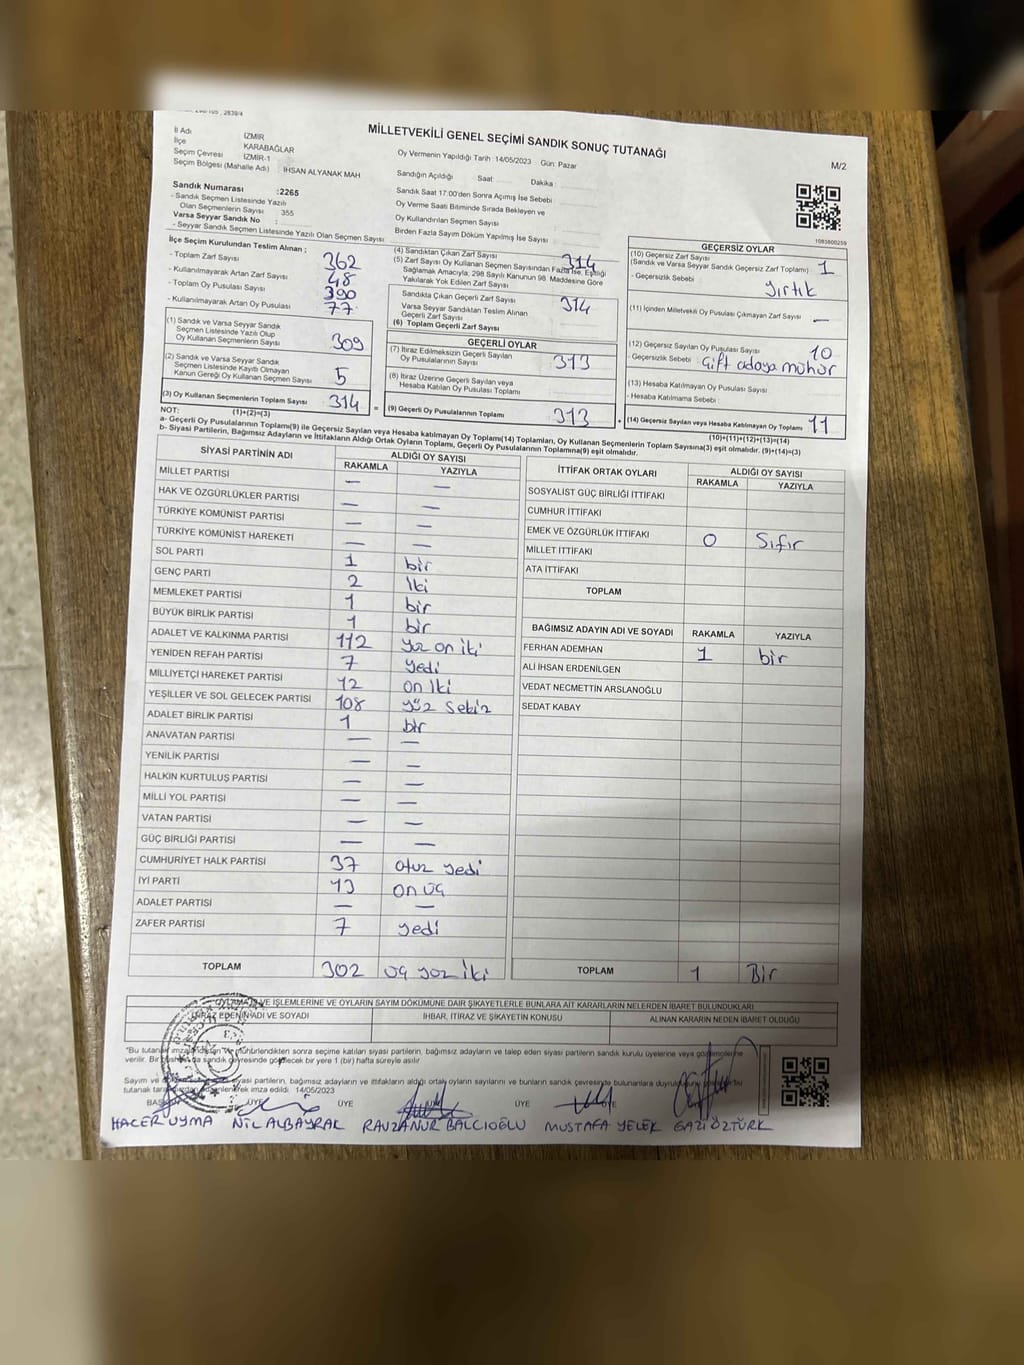 MİLLETVEKİLİ GENEL SEÇİMİ SANDIK SONUÇ TUTANAĞI
M/2
İl Adı İZMİR
İlçe KARABAĞLAR
Seçim Çevresi İZMİR-1
Seçim Bölgesi (Mahalle Adı) : İHSAN ALYANAK MAH
Sandık Numarası :2265
- Sandık Seçmen Listesinde Yazılı
Olan Seçmenlerin Sayısı 355
Varsa Seyyar Sandık No :
- Seyyar Sandık Seçmen Listesinde Yazılı Olan Seçmen Sayısı
Oy Vermenin Yapıldığı Tarih :14/05/2023 Gün: Pazar
Sandığın Açıldığı Saat Dakika :
Sandık Saat 17:00'den Sonra Açılmış İse Sebebi
Oy Verme Saati Bitiminde Sırada Bekleyen ve
Oy Kullandırılan Seçmen Sayısı
Birden Fazla Sayım Döküm Yapılmış İse Sayısı :
1083800259
İlçe Seçim Kurulundan Teslim Alınan :
- Toplam Zarf Sayısı 362
- Kullanılmayarak Artan Zarf Sayısı 48
- Toplam Oy Pusulası Sayısı 390
- Kullanılmayarak Artan Oy Pusulası 77
(1) Sandık ve Varsa Seyyar Sandık
Seçmen Listesinde Yazılı Olup
Oy Kullanan Seçmenlerin Sayısı 309
(2) Sandık ve Varsa Seyyar Sandık
Seçmen Listesinde Kayıtlı Olmayan
Kanun Gereği Oy Kullanan Seçmen Sayısı 5
(3) Oy Kullanan Seçmenlerin Toplam Sayısı 314
(4) Sandıktan Çıkan Zarf Sayısı 314
(5) Zarf Sayısı Oy Kullanan Seçmen Sayısından Fazla İse, Eşitliği
Sağlamak Amacıyla, 298 Sayılı Kanunun 98. Maddesine Göre
Yakılarak Yok Edilen Zarf Sayısı
Sandıkta Çıkan Geçerli Zarf Sayısı 314
Varsa Seyyar Sandıktan Teslim Alınan
Geçerli Zarf Sayısı
(6) Toplam Geçerli Zarf Sayısı
GEÇERLİ OYLAR
(7) İtiraz Edilmeksizin Geçerli Sayılan
Oy Pusulalarının Sayısı 313
(8) İtiraz Üzerine Geçerli Sayılan veya
Hesaba Katılan Oy Pusulası Toplamı
= (9) Geçerli Oy Pusulalarının Toplamı 313
GEÇERSİZ OYLAR
(10) Geçersiz Zarf Sayısı
(Sandık ve Varsa Seyyar Sandık Geçersiz Zarf Toplamı) 1
- Geçersizlik Sebebi : yırtık
(11) İçinden Milletvekili Oy Pusulası Çıkmayan Zarf Sayısı —
(12) Geçersiz Sayılan Oy Pusulası Sayısı 10
- Geçersizlik Sebebi : Çift adaya mühür
(13) Hesaba Katılmayan Oy Pusulası Sayısı
- Hesaba Katılmama Sebebi :
+ (14) Geçersiz Sayılan veya Hesaba Katılmayan Oy Toplamı 11
NOT: (1)+(2)=(3)
(10)+(11)+(12)+(13)=(14)
a- Geçerli Oy Pusulalarının Toplamı(9) ile Geçersiz Sayılan veya Hesaba katılmayan Oy Toplamı(14) Toplamları, Oy Kullanan Seçmenlerin Toplam Sayısına(3) eşit olmalıdır. (9)+(14)=(3)
b- Siyasi Partilerin, Bağımsız Adayların ve İttifakların Aldığı Ortak Oyların Toplamı, Geçerli Oy Pusulalarının Toplamına(9) eşit olmalıdır.
SİYASİ PARTİNİN ADI ALDIĞI OY SAYISI
RAKAMLA YAZIYLA
MİLLET PARTİSİ — —
HAK VE ÖZGÜRLÜKLER PARTİSİ — —
TÜRKİYE KOMÜNİST PARTİSİ — —
TÜRKİYE KOMÜNİST HAREKETİ — —
SOL PARTİ 1 bir
GENÇ PARTİ 2 iki
MEMLEKET PARTİSİ 1 bir
BÜYÜK BİRLİK PARTİSİ 1 bir
ADALET VE KALKINMA PARTİSİ 112 yüz on iki
YENİDEN REFAH PARTİSİ 7 yedi
MİLLİYETÇİ HAREKET PARTİSİ 12 on iki
YEŞİLLER VE SOL GELECEK PARTİSİ 108 yüz sekiz
ADALET BİRLİK PARTİSİ 1 bir
ANAVATAN PARTİSİ — —
YENİLİK PARTİSİ — —
HALKIN KURTULUŞ PARTİSİ — —
MİLLİ YOL PARTİSİ — —
VATAN PARTİSİ — —
GÜÇ BİRLİĞİ PARTİSİ — —
CUMHURİYET HALK PARTİSİ 37 otuz yedi
İYİ PARTİ 13 on üç
ADALET PARTİSİ — —
ZAFER PARTİSİ 7 yedi
TOPLAM 302 üç yüz iki
İTTİFAK ORTAK OYLARI ALDIĞI OY SAYISI
RAKAMLA YAZIYLA
SOSYALİST GÜÇ BİRLİĞİ İTTİFAKI
CUMHUR İTTİFAKI
EMEK VE ÖZGÜRLÜK İTTİFAKI 0 Sıfır
MİLLET İTTİFAKI
ATA İTTİFAKI
TOPLAM
BAĞIMSIZ ADAYIN ADI VE SOYADI RAKAMLA YAZIYLA
FERHAN ADEMHAN 1 bir
ALİ İHSAN ERDENİLGEN
VEDAT NECMETTİN ARSLANOĞLU
SEDAT KABAY
TOPLAM 1 Bir
VE İŞLEMLERİNE VE OYLARIN SAYIM DÖKÜMÜNE DAİR ŞİKAYETLERLE BUNLARA AİT KARARLARIN NELERDEN İBARET BULUNDUKLARI
İTİRAZ EDENİN ADI VE SOYADI İHBAR, İTİRAZ VE ŞİKAYETİN KONUSU ALINAN KARARIN NEDEN İBARET OLDUĞU
*Bu tutanak mühürlendikten sonra seçime katılan siyasi partilerin, bağımsız adayların ve talep eden siyasi partilerin sandık kurulu üyelerine veya gözlemcilerine
verilir. Bir sandık çevresinde görülecek bir yere 1 (bir) hafta süreyle asılır
Sayım ve siyasi partilerin, bağımsız adayların ve ittifakların aldığı ortak oyların sayılarını ve bunların sandık çevresinde bulunanlara
tutanak imza edildi. 14/05/2023
BAŞKAN ÜYE ÜYE ÜYE
HACER UYMA NİL ALBAYRAK RAVZANUR BALCIOĞLU MUSTAFA YELEK GAZİ ÖZTÜRK